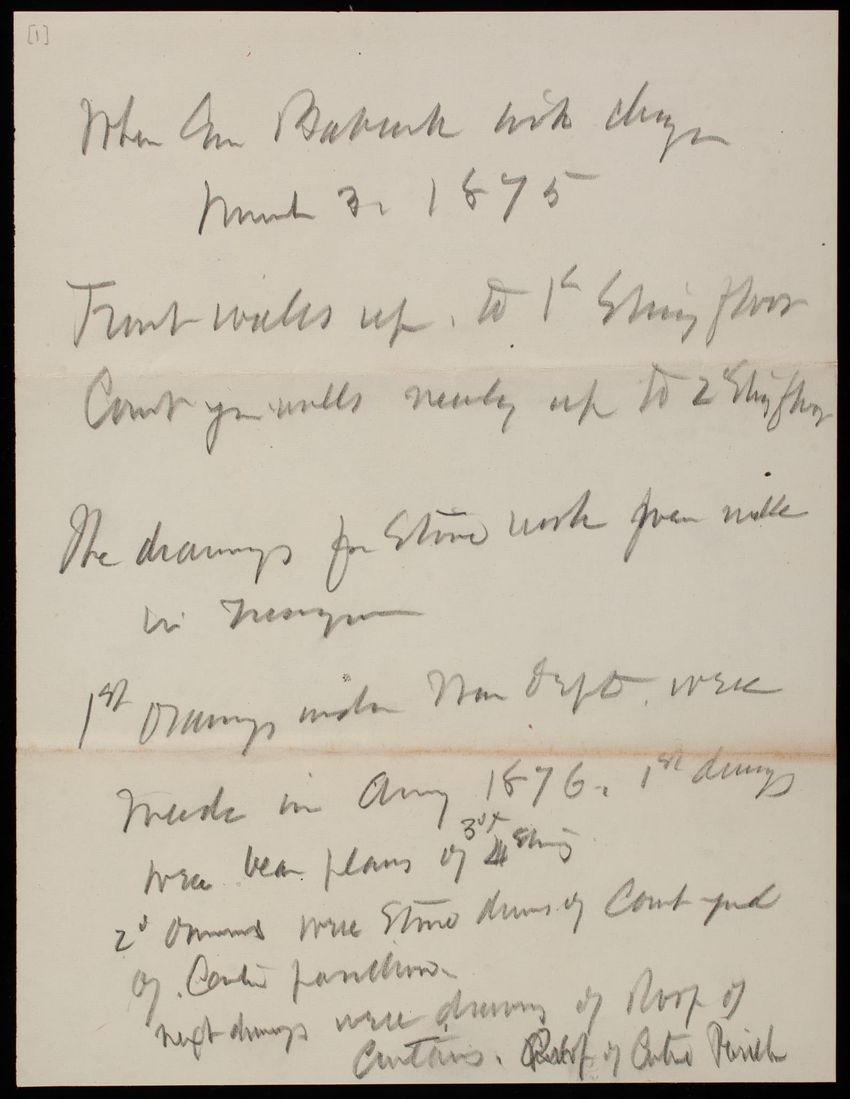 [1]
When Gen Babcock took charge
March 3. 1875
Front walls up. to 1st Story floor
Court yd walls nearly up to 2d Story floor
The drawings for Stone work from walk
in Treasury
1st Drawings under War Dept. were
made in Aug 1876. 1st drawings
were beam plans of 3rd Story
2d Drawings were Stone draws of Court yard
of. Centre pavilion
next drawings were drawings of Roof of
Curtains. Roof of Centre Pavilion